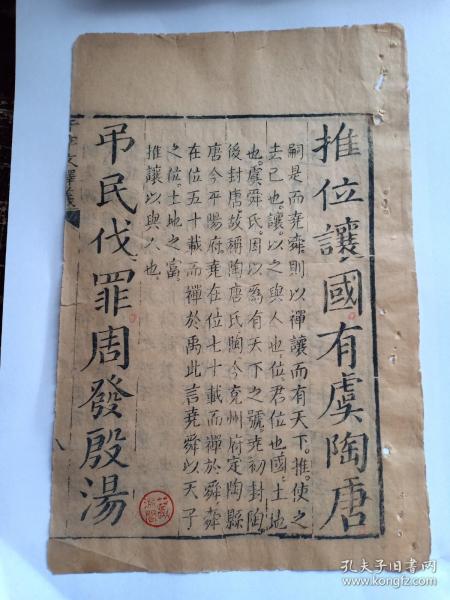 推位讓國有虞陶唐
嗣是而堯舜則以禪讓而有天下。推。使之
去已也。讓。以之與人也。位。君位也。國。土地
也。虞舜氏。因以為有天下之號。堯初封陶。
後封唐。故稱陶唐氏。陶今兗州府定陶縣
唐今平陽府。堯在位七十載而禪於舜。舜
在位五十載而禪於禹。此言堯舜以天子
之位。土地之富。
推讓以與人也。
弔民伐罪周發殷湯
千字文釋義
孔夫子旧书网
www.kongfz.com